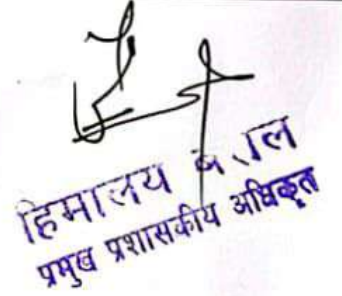 हिमालय
प्रमुख प्रशासकीय अधिकृत